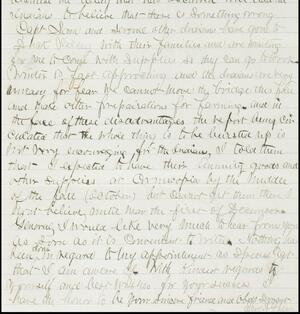 reasons to believe that there is something wrong
Capt. Sam and Jerome other Indians have gone to
Duck Valley with their families and are waiting
for me to Come with Supplies so they can go to work
Winter is fast Approaching and the Indians are very
uneasy for fear we Cannot move my bridge this fall
and make other preparations for farming and in
the face of these disadvantages the report being Cir
culated that the whole thing is to be busted up is
Not very encouraging for the Indians, I told them
that I expected to have their Annuity goods and
other Supplies at Cornucopia by the Middle
of the (October) but Cannot get them there I
Now believe until near the first of December
I would like very much to hear from you
As Soon as it is Convenient to write. Nothing has
been done in regard to my appointment as Special Agt
that I am aware of With Kindest regards to
yourself and best Wishes for your Success I
have the honor to be your Sincere friend and Obdt Servt